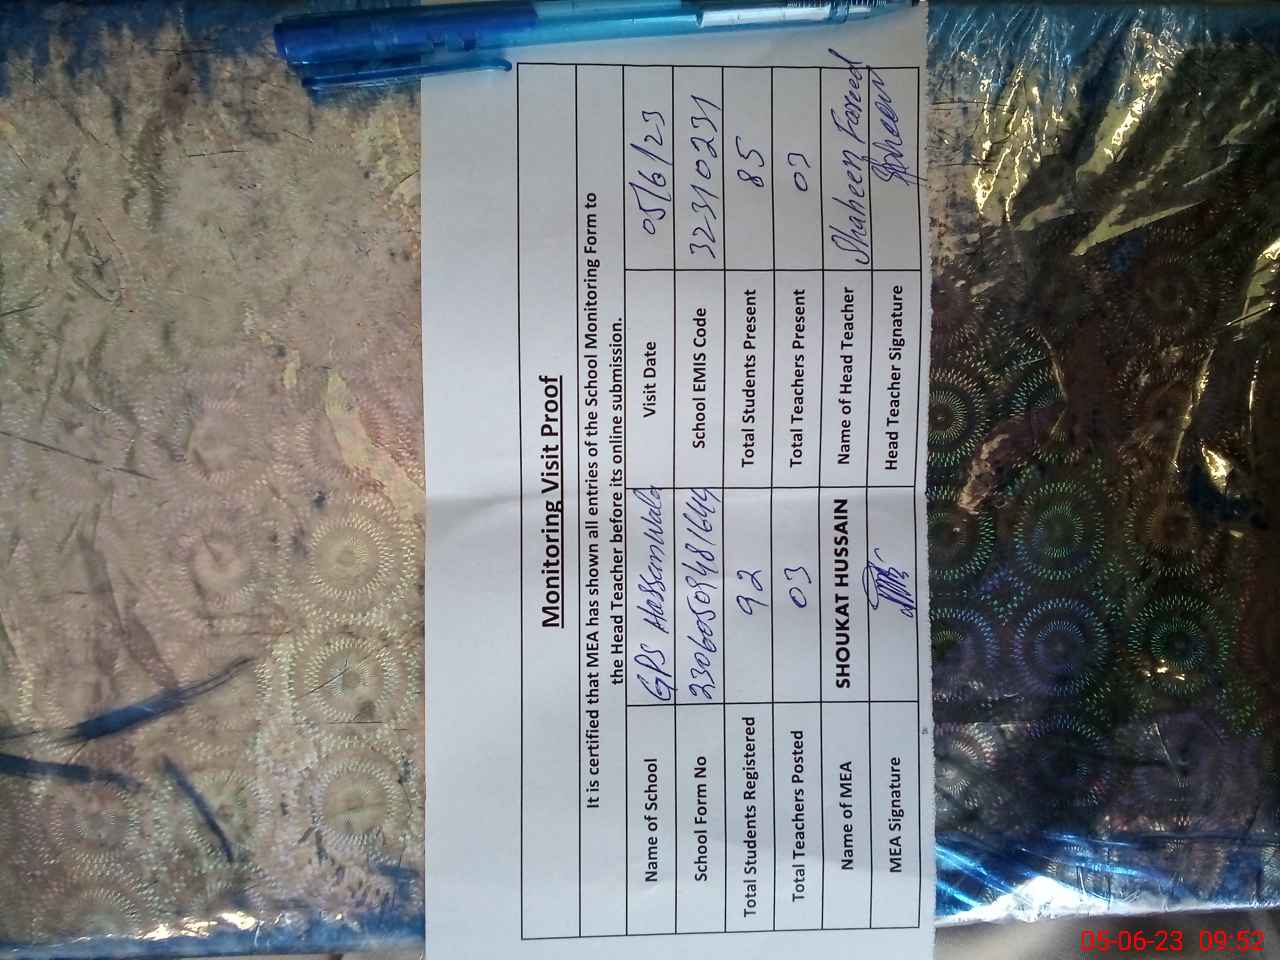 Monitoring Visit Proof
It is certified that MEA has shown all entries of the School Monitoring Form to
the Head Teacher before its online submission.
Name of School GPS Hassanwala Visit Date 05/6/23
School Form No 23060509481644 School EMIS Code 32310231
Total Students Registered 92 Total Students Present 85
Total Teachers Posted 03 Total Teachers Present 03
Name of MEA SHOUKAT HUSSAIN Name of Head Teacher Shaheen Fareed
MEA Signature Head Teacher Signature Shaheen
05-06-23 09:52